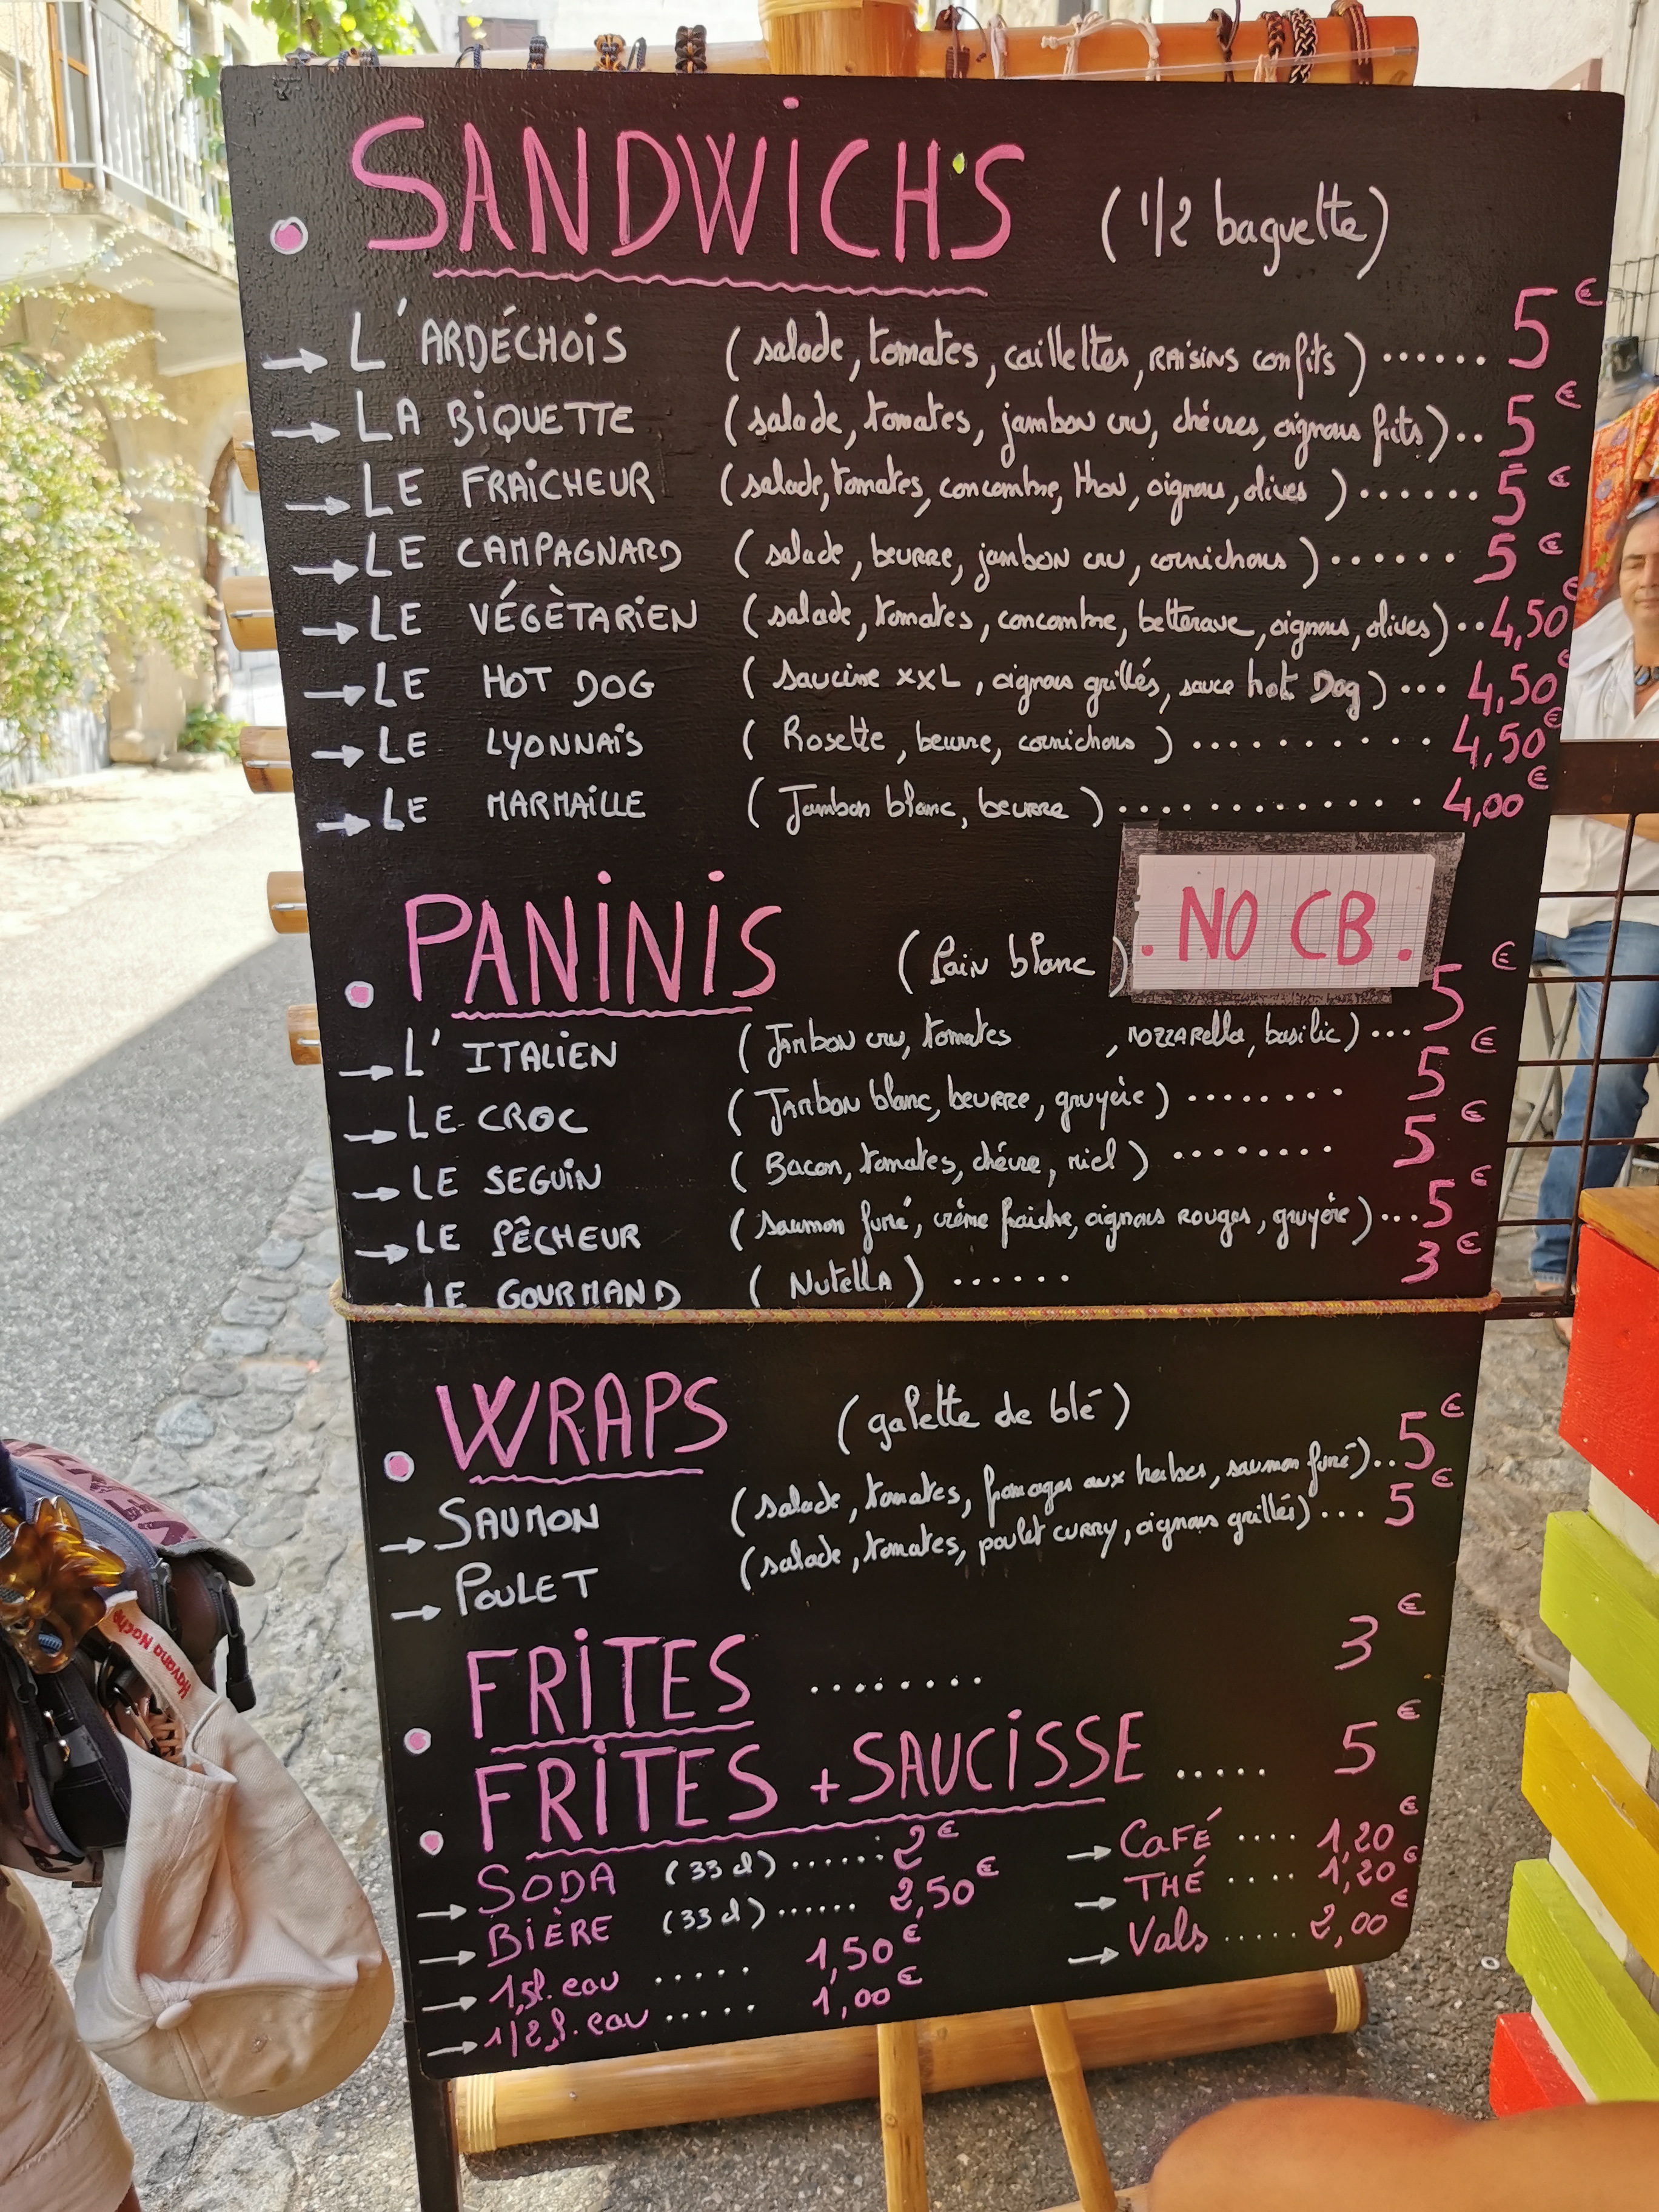 SANDWICH'S (1/2 baguette)
→ L'ARDÉCHOIS (salade, tomates, caillettes, RAISINS confits) ...... 5€
→ LA BIQUETTE (salade, tomates, jambon cru, chèvres, oignons frits) .. 5€
→ LE FRAICHEUR (salade, tomates, concombre, thon, oignons, olives) ...... 5€
→ LE CAMPAGNARD (salade, beurre, jambon cru, cornichons) ...... 5€
→ LE VÉGÈTARIEN (salade, tomates, concombre, betterave, oignons, olives) .. 4,50€
→ LE HOT DOG (saucisse XXL, oignons grillés, sauce hot Dog) ... 4,50€
→ LE LYONNAIS (Rosette, beurre, cornichons) ........... 4,50€
→ LE MARMAILLE (Jambon blanc, beurre) ............. 4,00€
. NO CB .
PANINIS (Pain blanc)
→ L'ITALIEN (Jambon cru, tomates , mozzarella, basilic) ... 5€
→ LE CROC (Jambon blanc, beurre, gruyère) ........ 5€
→ LE SEGUIN (Bacon, tomates, chèvre, miel) ........ 5€
→ LE PÊCHEUR (saumon fumé, crème fraiche, oignons rouges, gruyère) ... 5€
LE GOURMAND (Nutella) ...... 3€
WRAPS (galette de blé)
→ SAUMON (salade, tomates, fromages aux herbes, saumon fumé) .. 5€
→ POULET (salade, tomates, poulet curry, oignons grillés) ... 5€
FRITES ........ 3€
FRITES + SAUCISSE ..... 5€
→ SODA (33 cl) ...... 2€
→ BIÈRE (33 cl) ...... 2,50€
→ 1,5l. eau ..... 1,50€
→ 1/2 l. eau ..... 1,00€
→ CAFÉ .... 1,20€
→ THÉ .... 1,20€
→ Vals ..... 2,00€
Havana Noche